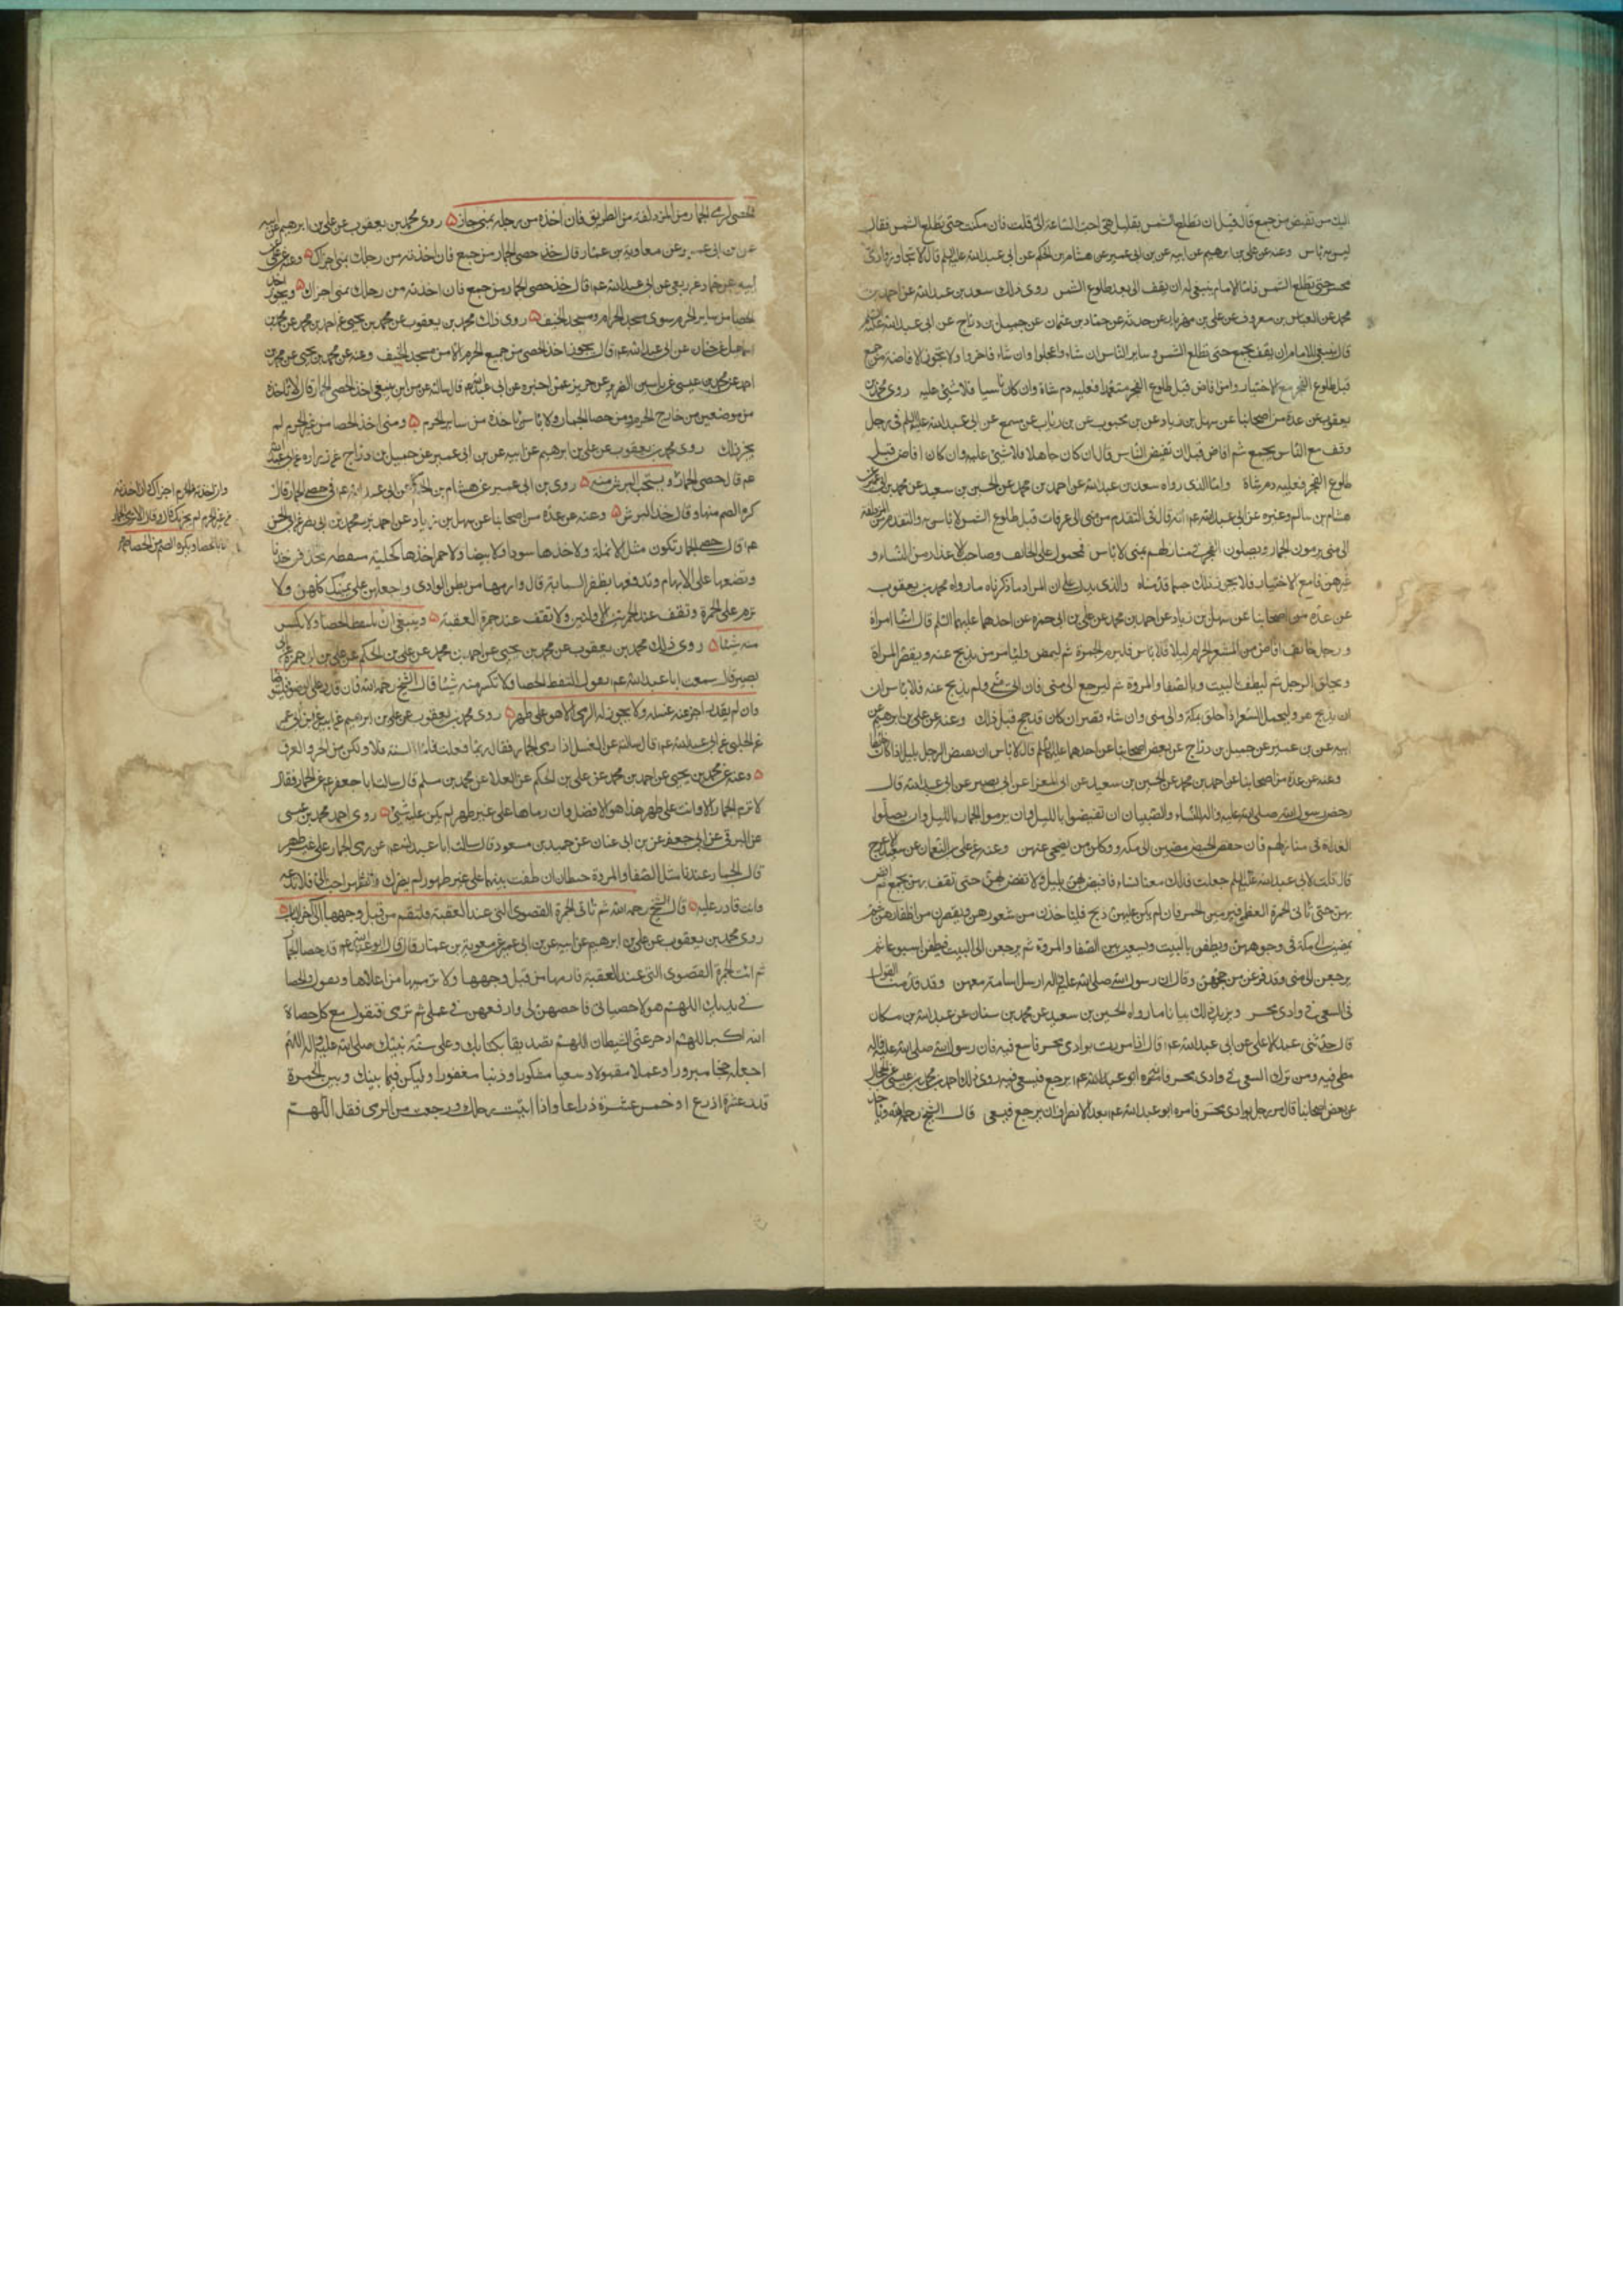 اليك من تفيض من جمع قال قبل ان تطلع الشمس بقليل هي احب الساعة الى قلت فان مكث حتى تطلع الشمس فقال
ليس به باس وعنه عن علي بن ابرهيم عن ابيه عن بن ابى عمير عن هشام بن الحكم عن ابى عبد الله عليه السلم قال لا تجاوز وادى
محسر حتى تطلع الشمس فاما الامام ينبغى له ان يقف الى بعد طلوع الشمس روى ذلك سعد بن عبد الله عن احمد بن
محمد عن العباس بن معروف عن علي بن مهزيار عن حدثه عن حماد بن عثمان عن جميل بن دراج عن ابى عبد الله عليه السلم
قال ينبغى للامام ان يقف بجمع حتى تطلع الشمس وساير الناس ان شاء واعجلوا وان شاء فاخروا ولا يجوز الافاضة من جمع
قبل طلوع الفجر مع الاختيار وامن افاض قبل طلوع الفجر متعمدا فعليه دم شاة وان كان ناسيا فلا شيئ عليه روى محمد بن
يعقوب عن عدة من اصحابنا عن سهل بن زياد عن بن محبوب عن بن رياب عن مسمع عن ابى عبد الله عليه السلم فى رجل
وقف مع الناس بجمع ثم افاض قبل ان تفيض الناس قال ان كان جاهلا فلا شيئ عليه وان كان افاض قبل
طلوع الفجر فعليه دم شاة واما الذى رواه سعد بن عبد الله عن احمد بن محمد عن الحسين بن سعيد عن محمد بن ابى عمير عن
هشام بن سالم وغيره عن ابى عبد الله عم انه قال فى التقدم من منى الى عرفات قبل طلوع الشمس لا باس به والتقدم من المزدلفة
الى منى يرمون الجمار ويصلون الفجر فى منازلهم بمنى لا باس فمحمول على الخائف وصاحب الاعذار من النساء و
غيرهن فامع الاختيار فلا يجوز ذلك حسبما قدمناه والذى يدل على ان المراد ما ذكرناه ما رواه محمد بن يعقوب
عن عدة من اصحابنا عن سهل بن زياد عن احمد بن محمد عن علي بن ابى حمزه عن احدهما عليهما السلم قال ايما امراة
و رجل خائف افاض من المشعر الحرام ليلا فلا باس فليرم الجمرة ثم ليمض وليامر من يذبح عنه ويقصر المراة
ويحلق الرجل ثم ليطف بالبيت وبالصفا والمروة ثم ليرجع الى منى فان اتى منى ولم يذبح عنه فلا باس ان
ان يذبح هو وليحمل الشعر اذا حلق بمكة والى منى وان شاء قصر ان كان قد حج قبل ذلك وعنه عن علي بن ابرهيم عن
ابيه عن بن عمير عن جميل بن دراج عن بعض اصحابنا عن احدهما عليهما السلم قال لا باس ان يفيض الرجل بليل اذا كان خائفا
وعنه عن عدة من اصحابنا عن احمد بن محمد عن الحسين بن سعيد عن ابى المعزا عن ابى بصير عن ابى عبد الله قال
رخص رسول الله صلى الله عليه واله النساء والصبيان ان تفيضوا بالليل وان يرموا الجمار بالليل وان يصلوا
الغداة فى منازلهم فان خفن الحيض مضين الى مكه ووكلن من يضحى عنهن وعنه عن علي بن النعمان عن سعيد الاعرج
قال قلت لابى عبد الله عليه السلم جعلت فداك معنا نساء فافيض بهن بليل ولا تفض بهن حتى تقف بهن بجمع ثم افض
بهن حتى تاتى الجمرة العظمى فيرمين الجمرة فان لم يكن عليهن ذبح فلياخذن من شعورهن ويقصرن من اظفارهن ثم
يمضين الى مكة فى وجوههن ويطفن بالبيت ويسعين بين الصفا والمروة ثم يرجعن الى البيت فيطفن اسبوعا ثم
يرجعن الى منى وقد فرغن من حجهن وقال ان رسول الله صلى الله عليه واله ارسل اسامة معهن وقد قدمنا القول
فى السعى فى وادى محسر ويزيد ذلك بيانا ما رواه الحسين بن سعيد عن محمد بن سنان عن عبد الله بن مسكان
قال حدثنى عبد الاعلى عن ابى عبد الله عم قال اذا مررت بوادى محسر فاسع فيه فان رسول الله صلى الله عليه واله
سعى فيه ومن ترك السعى فى وادى محسر فامره ابو عبد الله عم يرجع فيسعى فيه روى ذلك احمد بن محمد بن عيسى عن الحجال
عن بعض اصحابنا قال مر رجل بوادى محسر فامره ابو عبد الله عم بعد الانصراف ان يرجع فيسعى قال الشيخ رحمه الله وياخذ
الحصى لرمى الجمار من المزدلفة من الطريق فان اخذه من رحله بمنى جاز روى محمد بن يعقوب عن علي بن ابرهيم عن ابيه
عن بن ابى عمير وعن معاوية بن عمار قال خذ حصى الجمار من جمع فان اخذته من رحلك بمنى اجزاك وعنه عن علي عن
ابيه عن حماد عن ربعى عن ابى عبد الله عم قال خذ حصى الجمار من جمع فان اخذته من رحلك بمنى اجزاك ويجوز اخذ
الحصا من ساير الحرم سوى مسجد الحرام ومسجد الخيف روى ذلك محمد بن يعقوب عن محمد بن يحيى عن احمد بن محمد عن محمد بن
اسماعيل عن حنان عن ابى عبد الله عم قال يجوز اخذ الحصى من جميع الحرم الا من مسجد الخيف وعنه عن محمد بن يحيى عن محمد بن
احمد عن محمد بن عيسى عن ياسين الضرير عن حريز عمن اخبره عن ابى عبد الله قال سالته من اين ينبغى اخذ الحصى الجمار قال لا تاخذه
من موضعين من خارج الحرم ومن حصا الجمار ولا باس باخذه من ساير الحرم ومتى اخذ الحصا من غير الحرم لم
يجز ذلك روى محمد بن يعقوب عن علي بن ابرهيم عن ابيه عن بن ابى عمير عن جميل بن دراج عن زراره عن ابى عبد الله
عم قال حصى الجمار ويستحب البرش منه روى بن ابى عمير عن هشام بن الحكم عن ابى عبد الله عم فى حصى الجمار قال
كره الصم منها وقال خذ البرش وعنه عن عدة من اصحابنا عن سهل بن زياد عن احمد بن محمد بن ابى نصر عن ابى الحسن
عم قال حصى الجمار تكون مثل الانملة ولا تاخذها سودا ولا بيضا ولا حمرا خذها كحلية منقطه تخذفهن خذفا
وتضعها على الابهام وتدفعها بظفر السبابة قال وارمها من بطن الوادى واجعلهن على يمينك كلهن ولا
ترم على الجمرة وتقف عند الجمرتين الاولتين ولا تقف عند جمرة العقبة وينبغى ان يلتقط الحصا ولا يكسر
منه شيئا روى ذلك محمد بن يعقوب عن محمد بن يحيى عن احمد بن محمد عن علي بن الحكم عن علي بن ابى حمزة عن ابى
بصير قال سمعت ابا عبد الله عم يقول التقط الحصا ولا تكسر منه شيئا قال الشيخ رحمه الله فان قدر على الوضوء فليتوضا
وان لم يقدر اجزءه عنه غسله ولا يجوز له الرمى الا هو على طهر روى محمد بن يعقوب عن علي بن ابرهيم عن ابيه عن ابن ابى عمير
عن الحلبى عن ابى عبد الله عم قال سالته عن الغسل اذا رمى الجمار فقال ربما فعلت فاما السنة فلا ولكن من الحر والعرق
وعنه عن محمد بن يحيى عن احمد بن محمد عن علي بن الحكم عن العلا عن محمد بن مسلم قال سالت ابا جعفر عم عن الجمار فقال
لا ترم الجمار الا وانت على طهر هذا هو الافضل وان رماها على غير طهر لم يكن عليه شيئ روى احمد محمد بن عيسى
عن البرقى عن ابى جعفر عن بن ابى غسان عن حميد بن مسعود قال سالت ابا عبد الله عم عن رمى الجمار على غير طهر
قال الجمار عندنا مثل الصفا والمروة حيطان ان طفت بينهما على غير طهور لم يضرك والطهر احب الى فلا تدعه
وانت قادر عليه قال الشيخ رحمه الله ثم تاتى الجمرة القصوى التى عند العقبة وليقم من قبل وجهها الى اخر الباب
روى محمد بن يعقوب عن علي بن ابرهيم عن ابيه عن بن ابى عمير عن معوية بن عمار قال قال ابو عبد الله عم خذ حصا الجمار
ثم ائت الجمرة القصوى التى عند العقبة فارمها من قبل وجهها ولا ترميها من اعلاها وتقول والحصا
فى يديك اللهم هولا حصياتى فاحصهن لى وارفعهن فى عملى ثم ترمى فتقول مع كل حصاة
الله اكبر اللهم ادحر عنى الشيطان اللهم تصديقا بكتابك وعلى سنة نبيك صلى الله عليه واله اللهم
اجعله حجا مبرورا وعملا مقبولا وسعيا مشكورا وذنبا مغفورا وليكن فيما بينك وبين الجمرة
قدر عشرة اذرع او خمس عشرة ذراعا واذا اتيت رحلك ورجعت من الرمى فقل اللهم
وان اخذته من الحرم اجزاك وان اخذته
من غير الحرم لم يجزك قال وقال لا ترمى الجمار
الا بالحصا ويكره الصم من الحصا